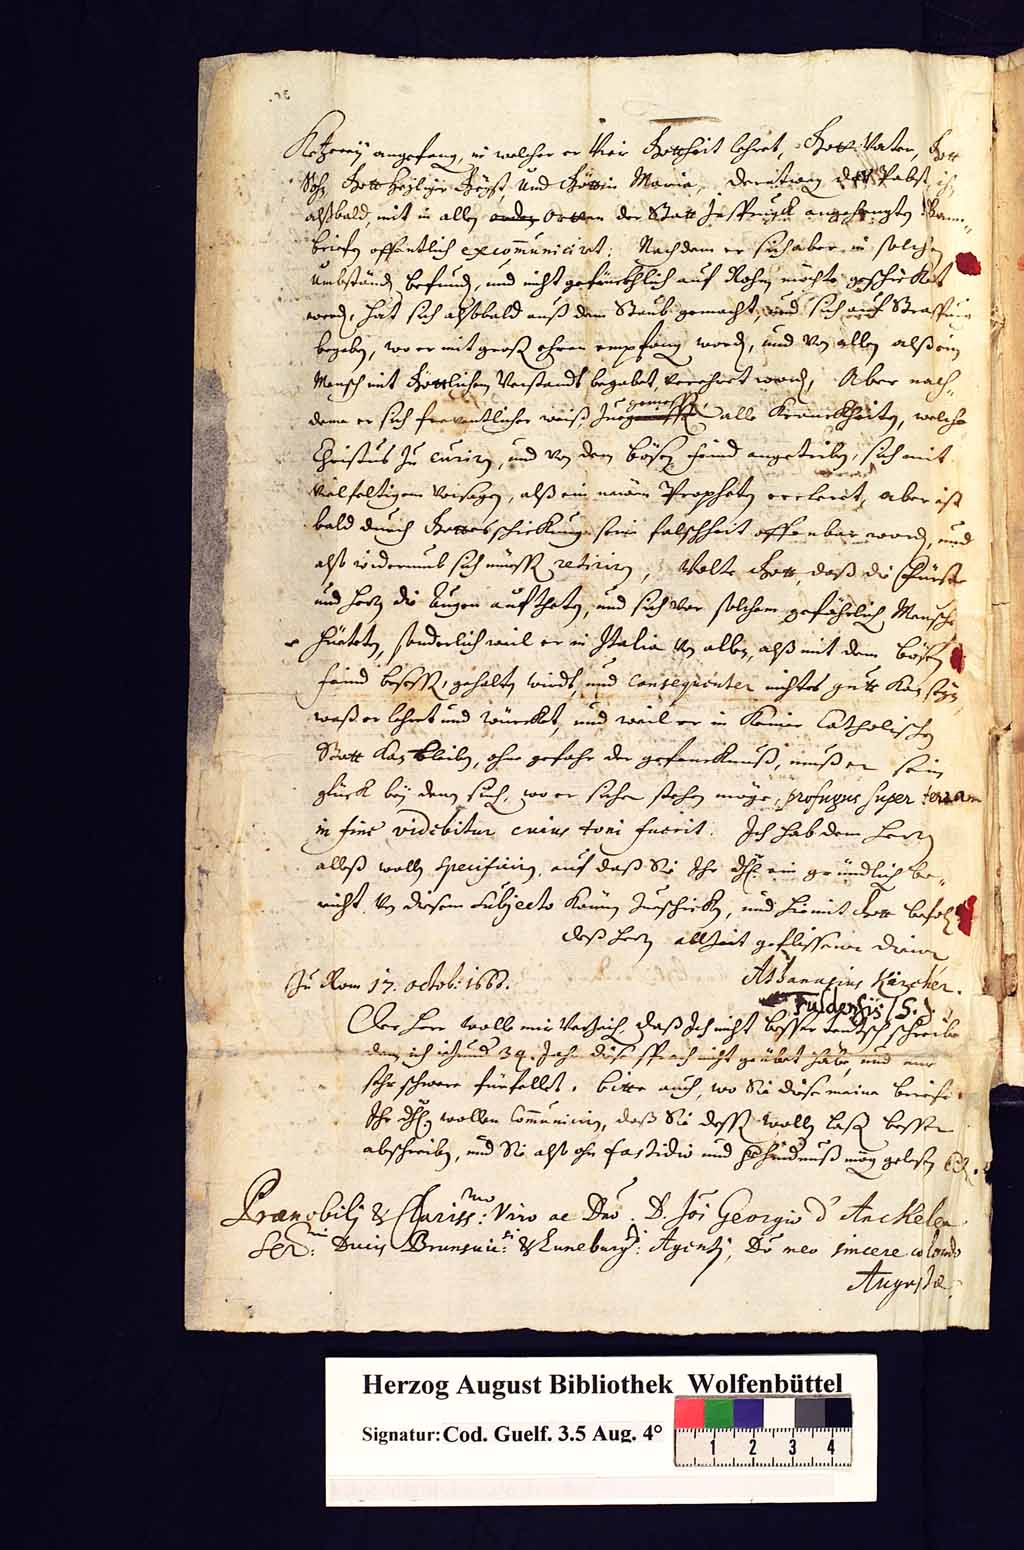 Ketzereÿ angefang, in welcher er Vier Gottheit lehret, Gott Vater, Gott
Sohn Gott Heyliger Geyst, und Göttin Maria, derentweg der Pabst ihn
alßbald, mit in allen Orten der Statt angehengten
briefen offentlich excommuniciret: Nachdem er sich aber in solchen
umbständ befund, und nicht gefäncklich auf Rohm möchte geschicket
werd, hat sich alßbald auß dem Staub gemacht, und sich auf Straßburg
begeben, wo er mit groß ehren empfang word, und von allen alß ein
Mensch mit Göttlichem Verstandt begabet, verehret word, Aber nach-
deme er sich freventlicher weiß, alle Kranckheiten, welche
Christus zu curirn, und von dem bösen feind angetrieben, sich mit
vielfeltigem vorsagen, alß ein neuen Propheten erclerit, aber ist
bald durch Gottes schickung sein falschheit offenbar word, und
alß widerumb sich müssen retirirn, Wolte Gott, daß die Fürsten
und Herrn die Augen auftheten, und sich vor solchem gefährlich Mensche
hüeteten, sonderlich weil er in Italia von allen, alß mit dem bösen
feind besessen, gehalten wirdt, und consequenter nichtes gutt kan seyn,
waß er lehret und würcket, und weil er in keiner Catholischen
Statt kan bleiben, ohne gefahr der gefencknuß, muß er sein
glück bey denen such, wo er sicher stehen möge, profugus super terram
in fine videbitur cuius toni fuerit. Ich hab dem Herrn
alleß wollen specificirn, auf daß Sie Ihr Dhl. ein gründlich be-
richt von diesem subjecto können zuschicken, und hiemit Gott befohlen
deß Herrn allzeit geflissener diener
Athanasius Kircher.
Fuldensis S.J.
Zu Rom 17. octob: 1666.
Der Herr wolle mir verzeich daß Ich nicht besser teutsch schreibe
dan ich ietzund 34. Jahr diese sprach nicht geübet habe, und mir
sehr schwere fürfellet. bitte auch, wo Sie diese meine briefe
Ihr Dhl. wollen communicirn, daß Sie dessen wollen laßen besser
abschreiben, und Sie alß ohn fastidio und mög gelesen
Praenobili & Clariss:mo Viro ac Dno. D. Joi Georgio d' Anckelen
Ser:mi Ducis Brunsuic: & Luneburg: Agenti, Do meo sincere colendo
Augustae.
Herzog August Bibliothek Wolfenbüttel
Signatur: Cod. Guelf. 3.5 Aug. 4°
1 2 3 4